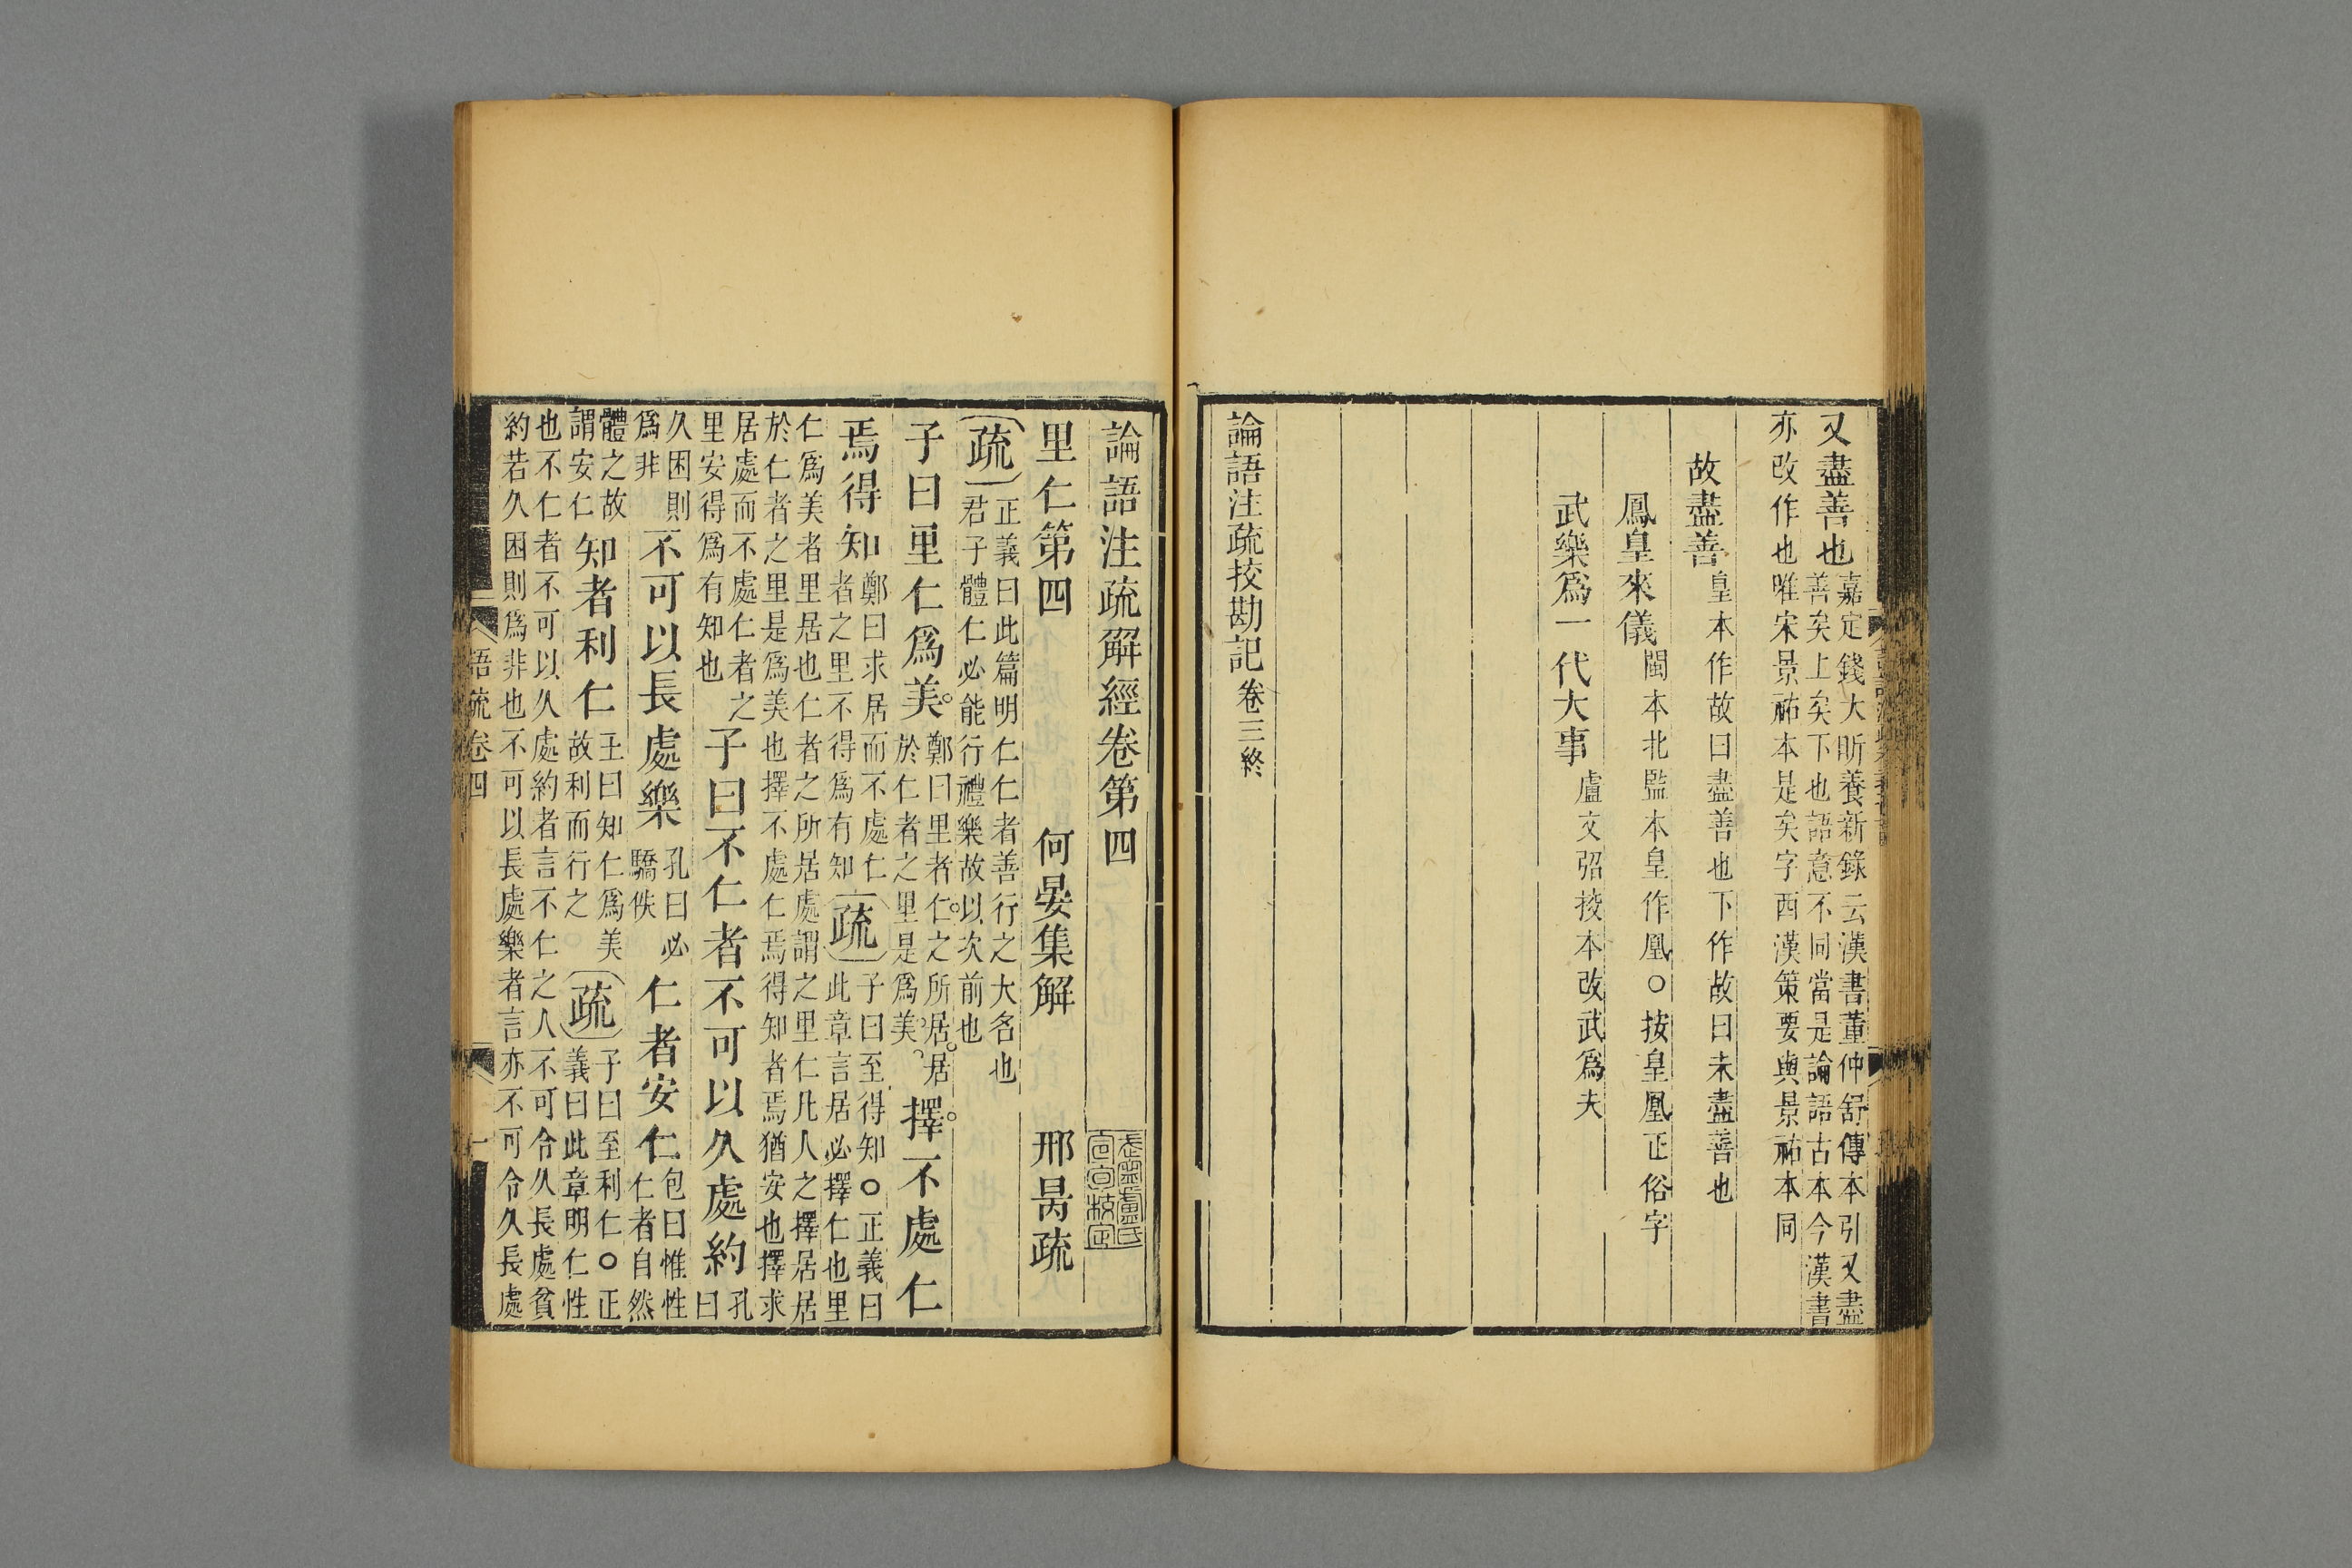 又盡善也
嘉定錢大昕養新錄云漢書董仲舒傳本引又盡
善矣上矣下也語意不同當是論語古本今漢書
亦改作也唯宋景祐本是矣字西漢策要與景祐本同
故盡善皇本作故曰盡善也下作故曰未盡善也
鳳皇來儀閩本北監本皇作凰○按皇凰正俗字
武樂爲一代大事盧文弨挍本改武爲夫
論語注疏挍勘記卷三終
論語注疏解經卷第四
里仁第四 何晏集解 邢昺疏
疏
正義曰此篇明仁仁者善行之大名也
君子體仁必能行禮樂故以次前也
子曰里仁爲美
鄭曰里者仁之所居居
於仁者之里是爲美
擇不處仁
焉得知
鄭曰求居而不處仁
者之里不得爲有知
疏
子曰至得知○正義曰
此章言居必擇仁也里
仁爲美者里居也仁者之所居處謂之里仁凡人之擇居居
於仁者之里是爲美也擇不處仁焉得知者焉猶安也擇求
居處而不處仁者之
里安得爲有知也
子曰不仁者不可以久處約
孔
曰
久困則
爲非
不可以長處樂
孔曰必
驕佚
仁者安仁
包曰惟性
仁者自然
體之故
謂安仁
知者利仁
王曰知仁爲美
故利而行之
疏
子曰至利仁○正
義曰此章明仁性
也不仁者不可以久處約者言不仁之人不可令久長處貧
約若久困則爲非也不可以長處樂者言亦不可令久長處
語疏卷四 一